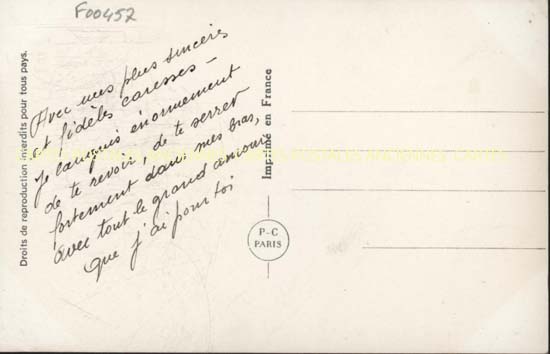 F00457
Droits de reproduction interdits pour tous pays.
Avec mes plus sincères
et fidèles caresses –
Je languis énormement
de te revoir, de te serrer
fortement dans mes bras,
avec tout le grand amour
que j'ai pour toi
Imprimé en France
P-C
PARIS